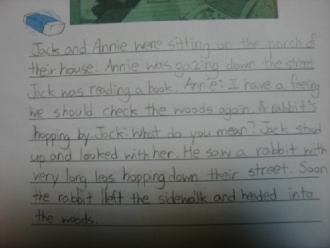 Jack and Annie were sitting on the porch of
their house. Annie was gazing down the street
Jack was reading a book. Annie: I have a feeling
we should check the woods again. A rabbit's
hopping by. Jack: What do you mean? Jack stood
up and looked with her. He saw a rabbit with
very long legs hopping down their street. Soon
the rabbit left the sidewalk and headed into
the woods.